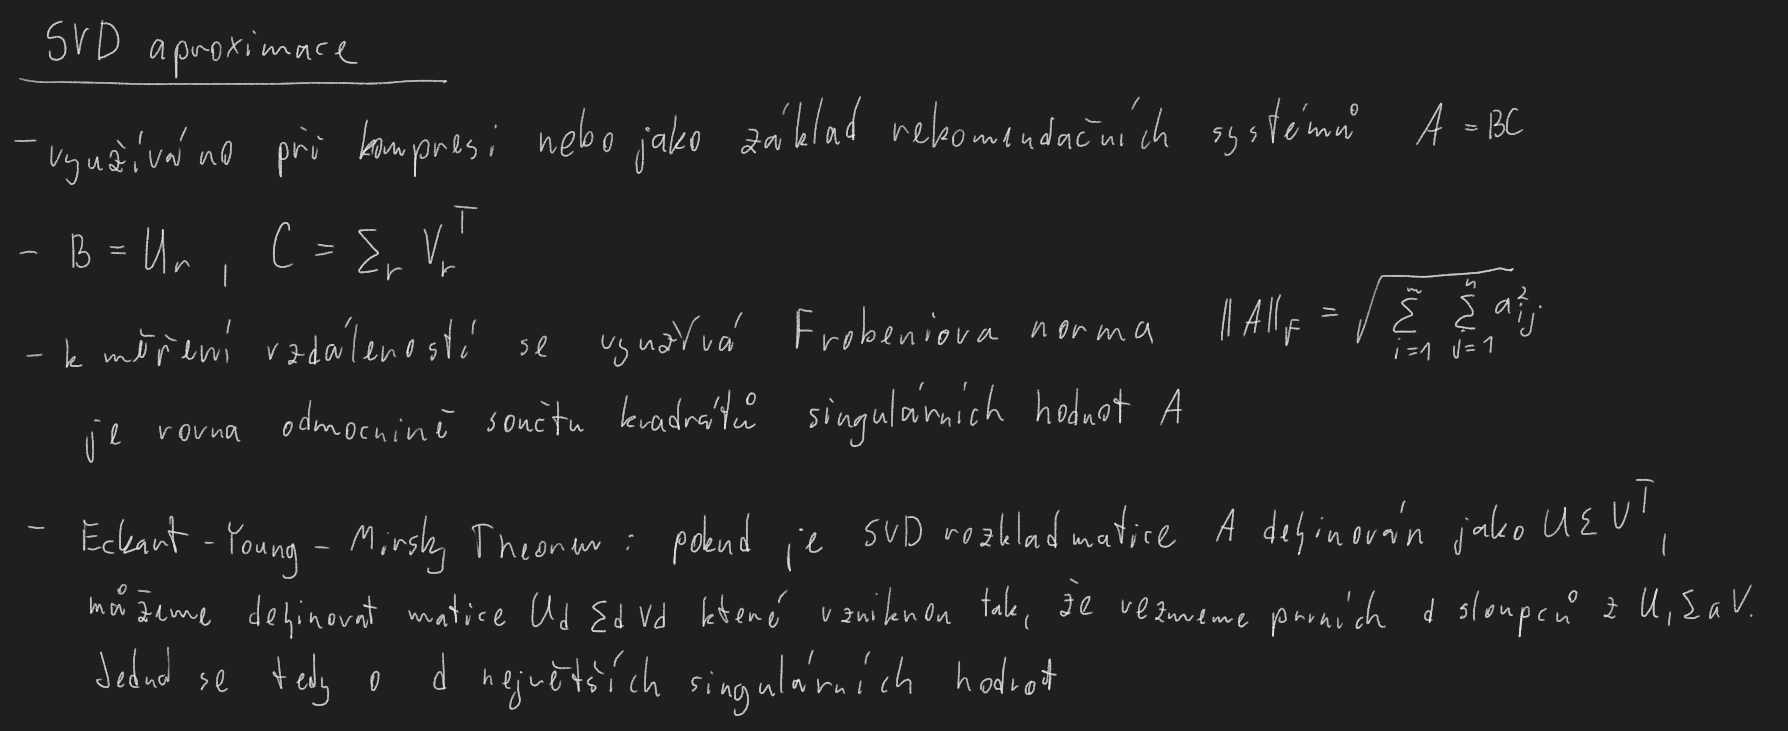 SVD aproximace
- využíváno při kompresi nebo jako základ rekomendačních systémů A = BC
- B = U_r, C = Σ_r V_r^T
- k měření vzdáleností se využívá Frobeniova norma ||A||_F = √(Σ_{i=1}^{m} Σ_{j=1}^{n} a_{ij}^2)
je rovna odmocnině součtu kvadrátů singulárních hodnot A
- Eckart-Young-Mirsky Theorem: pokud je SVD rozklad matice A definován jako UΣV^T,
můžeme definovat matice U_d Σ_d V_d které vzniknou tak, že vezmeme prvních d sloupců z U, Σ a V.
Jedná se tedy o d největších singulárních hodnot